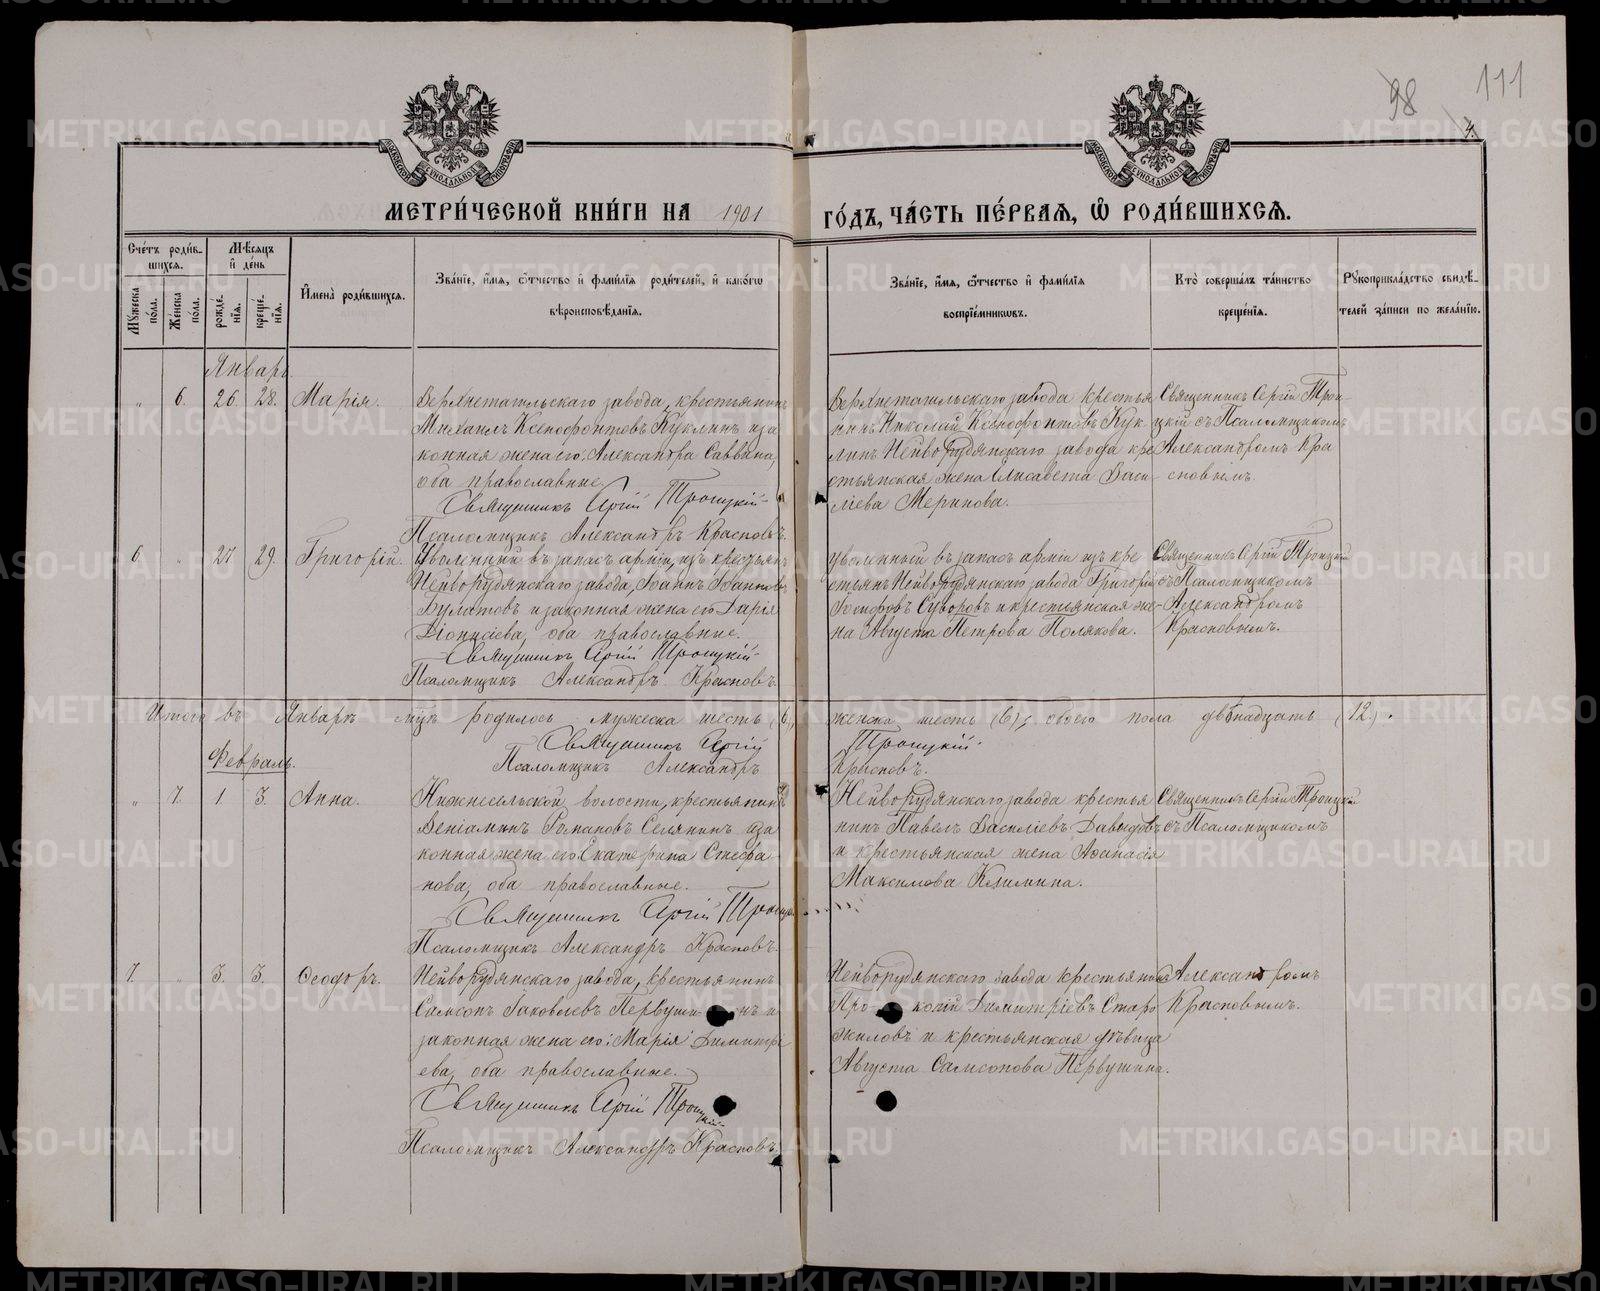 98
111
4.
МЕТРИ́ЧЕСКОЙ КНИ́ГИ НА 1901 ГО́ДЪ, ЧА́СТЬ ПЕ́РВАѦ, Ѽ РОДИ́ВШИХСѦ.
Сче́тъ роди́в-
шихсѧ.
Мѣ́сѧцъ
и҆ де́нь
Мꙋ́жеска по́ла.
Же́нска по́ла.
рожде́нїѧ.
креще́нїѧ.
И҆мена̀ роди́вшихсѧ.
Зва́нїе, и҆́мѧ, ѻ҆́тчество и҆ фами́лїѧ роди́телей, и҆ како́гѡ
вѣроисповѣ́данїѧ.
Зва́нїе, и҆́мѧ, ѻ҆́тчество и҆ фами́лїѧ
воспрїе́мникѡвъ.
Кто̀ соверша́лъ та́инство
креще́нїѧ.
Рꙋкоприкла́дство свидѣ́-
телей за́писи по жела́нїю.
Январь.
„ 6. 26. 28. Марія.
Верхнетагильскаго завода, крестьянинъ
Михаилъ Ксенофонтовъ Куклинъ и за
конная жена его: Александра Саввина,
оба православные.
Священникъ Сергій Троицкій
Псаломщикъ Александръ Красновъ.
Верхнетагильскаго завода крестья
нинъ Николай Ксенофонтовъ Кук
линъ Нейворудянскаго завода кре
стьянская жена Елисавета Васи
ліева Меринова.
Священникъ Сергій Трои
цкій съ Псаломщикомъ
Александромъ Кра
сновымъ
6. „ 27. 29. Григорій.
Уволенный въ запасъ арміи, изъ крестьянъ
Нейворудянскаго завода, Іоаннъ Іоанновъ
Булатовъ и законная жена его Дарія
Діонисіева, оба православные.
Священникъ Сергій Троицкій
Псаломщикъ Александръ Красновъ.
уволенный въ запасъ арміи изъ кре
стьянъ Нейворудянскаго завода Григорій
Іосифовъ Суворовъ и крестьянская же-
на Августа Петрова Полякова.
Священникъ Сергій Троицкій
съ Псаломщикомъ
Александромъ
Красновымъ.
Итого въ Январѣ мцѣ родилось мужеска шесть (6), женска шесть (6), обоего пола двѣнадцать (12.).
Священникъ Сергій Троицкій.
Псаломщикъ Александръ Красновъ.
Февраль.
„ 7. 1. 3. Анна.
Нижнесельской волости, крестьянинъ
Веніаминъ Романовъ Селянинъ и за
конная жена его: Екатерина Стефа
нова, оба православные.
Священникъ Сергій Троицк
Псаломщикъ Александръ Красновъ.
Нейворудянскаго завода крестья
нинъ Павелъ Василіевъ Давыдовъ
и крестьянская жена Аѳанасія
Максимова Климина.
Священникъ Сергій Троицкій
съ Псаломщикомъ
7. „ 3. 3. Ѳеодоръ.
Нейворудянскаго завода, крестьянинъ
Самсонъ Іаковлевъ Первуши нъ и
законная жена его: Марія Димитрі
ева, оба православные.
Священникъ Сергій Троицкій
Псаломщикъ Александръ Красновъ.
Нейворудянскаго завода крестьянинъ
Про копій Димитріевъ Старо
жиловъ и крестьянская дѣвица
Августа Самсонова Первушина.
Александромъ
Красновымъ.